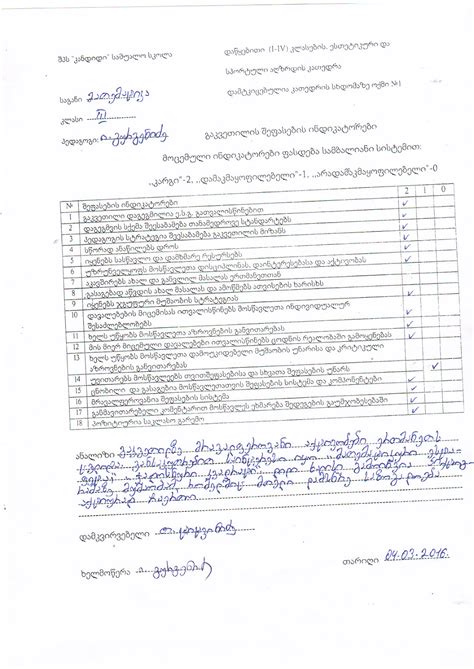 შპს "კანდიდი" საშუალო სკოლა
დაწყებითი (I-IV) კლასების, ესთეტიკური და
სპორტული აღზრდის კათედრა
დამტკიცებულია კათედრის სხდომაზე ოქმი №1
საგანი მათემატიკა
კლასი III
პედაგოგი:
გაკვეთილის შეფასების ინდიკატორები
მოცემული ინდიკატორები ფასდება სამბალიანი სისტემით:
,,კარგი"-2, ,,დამაკმაყოფილებელი"-1, ,,არადამაკმაყოფილებელი"-0
№ შეფასების ინდიკატორები 2 1 0
1 გაკვეთილი დაგეგმილია ე.ს.გ. გათვალისწინებით
2 დაგეგმვის სქემა შეესაბამება თანამედროვე სტანდარტებს
3 პედაგოგის სტრატეგია შეესაბამება გაკვეთილის მიზანს
4 სწორად ანაწილებს დროს
5 იყენებს სასწავლო და დამხმარე რესურსებს
6 უზრუნველყოფს მოსწავლეთა დისციპლინას, დაინტერესებასა და აქტივობას
7 აკავშირებს ახალ და განვლილ მასალას ერთმანეთთან
8 გასაგებად აწვდის ახალ მასალას და ამოწმებს ათვისების ხარისხს
9 იყენებს ჯგუფური მუშაობის სტრატეგიას
10 დავალებების მიცემისას ითვალისწინებს მოსწავლეთა ინდივიდუალურ
შესაძლებლობებს
11 ხელს უწყობს მოსწავლეთა აზროვნების განვითარებას
12 მის მიერ მიცემული დავალებები ითვალისწინებს ცოდნის რეალობაში გამოყენებას
13 ხელს უწყობს მოსწავლეთა დამოუკიდებელი მუშაობის უნარისა და კრიტიკული
აზროვნების განვითარებას
14 უვითარებს მოსწავლეებს თვითშეფასებისა და სხვათა შეფასების უნარს
15 ცნობილი და გასაგებია მოსწავლეთათვის შეფასების სისტემა და კომპონენტები
16 მრავალფეროვანია შეფასების სისტემა
17 განმავითარებელი კომენტარით მოსწავლეს ეხმარება შედეგების გაუმჯობესებაში
18 პოზიტიურია საკლასო გარემო
ანალიზი გაკვეთილზე მრავალფეროვანი აქტივობები ერთმანეთს
დამკვირვებელი
ხელმოწერა
თარიღი 04.03.2016.